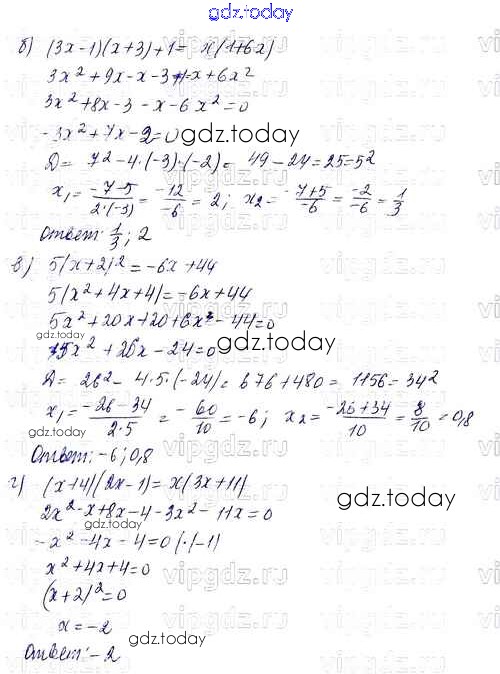 gdz.today
б) (3x-1)(x+3)+1=x(1+6x)
3x²+9x-x-3+1=x+6x²
3x²+8x-3-x-6x²=0
-3x²+7x-2=0
gdz.today
D= 7²-4·(-3)·(-2)= 49-24=25=5²
x₁= -7-5 / 2·(-3) = -12 / -6 = 2; x₂= -7+5 / -6 = -2 / -6 = 1/3
Ответ: 1/3; 2
в) 5(x+2)²=-6x+44
5(x²+4x+4)=-6x+44
5x²+20x+20+6x-44=0
gdz.today
5x²+26x-24=0
gdz.today
D= 26²-4·5·(-24)= 676+480= 1156=34²
x₁= -26-34 / 2·5 = -60/10 =-6; x₂= -26+34 / 10 = 8/10 =0,8
gdz.today
Ответ: -6; 0,8
г) (x+4)(2x-1)=x(3x+11)
gdz.today
2x²-x+8x-4-3x²-11x=0
gdz.today
-x²-4x-4=0 (·(-1)
x²+4x+4=0
(x+2)²=0
x=-2
gdz.today
Ответ: -2
vipgdz.ru